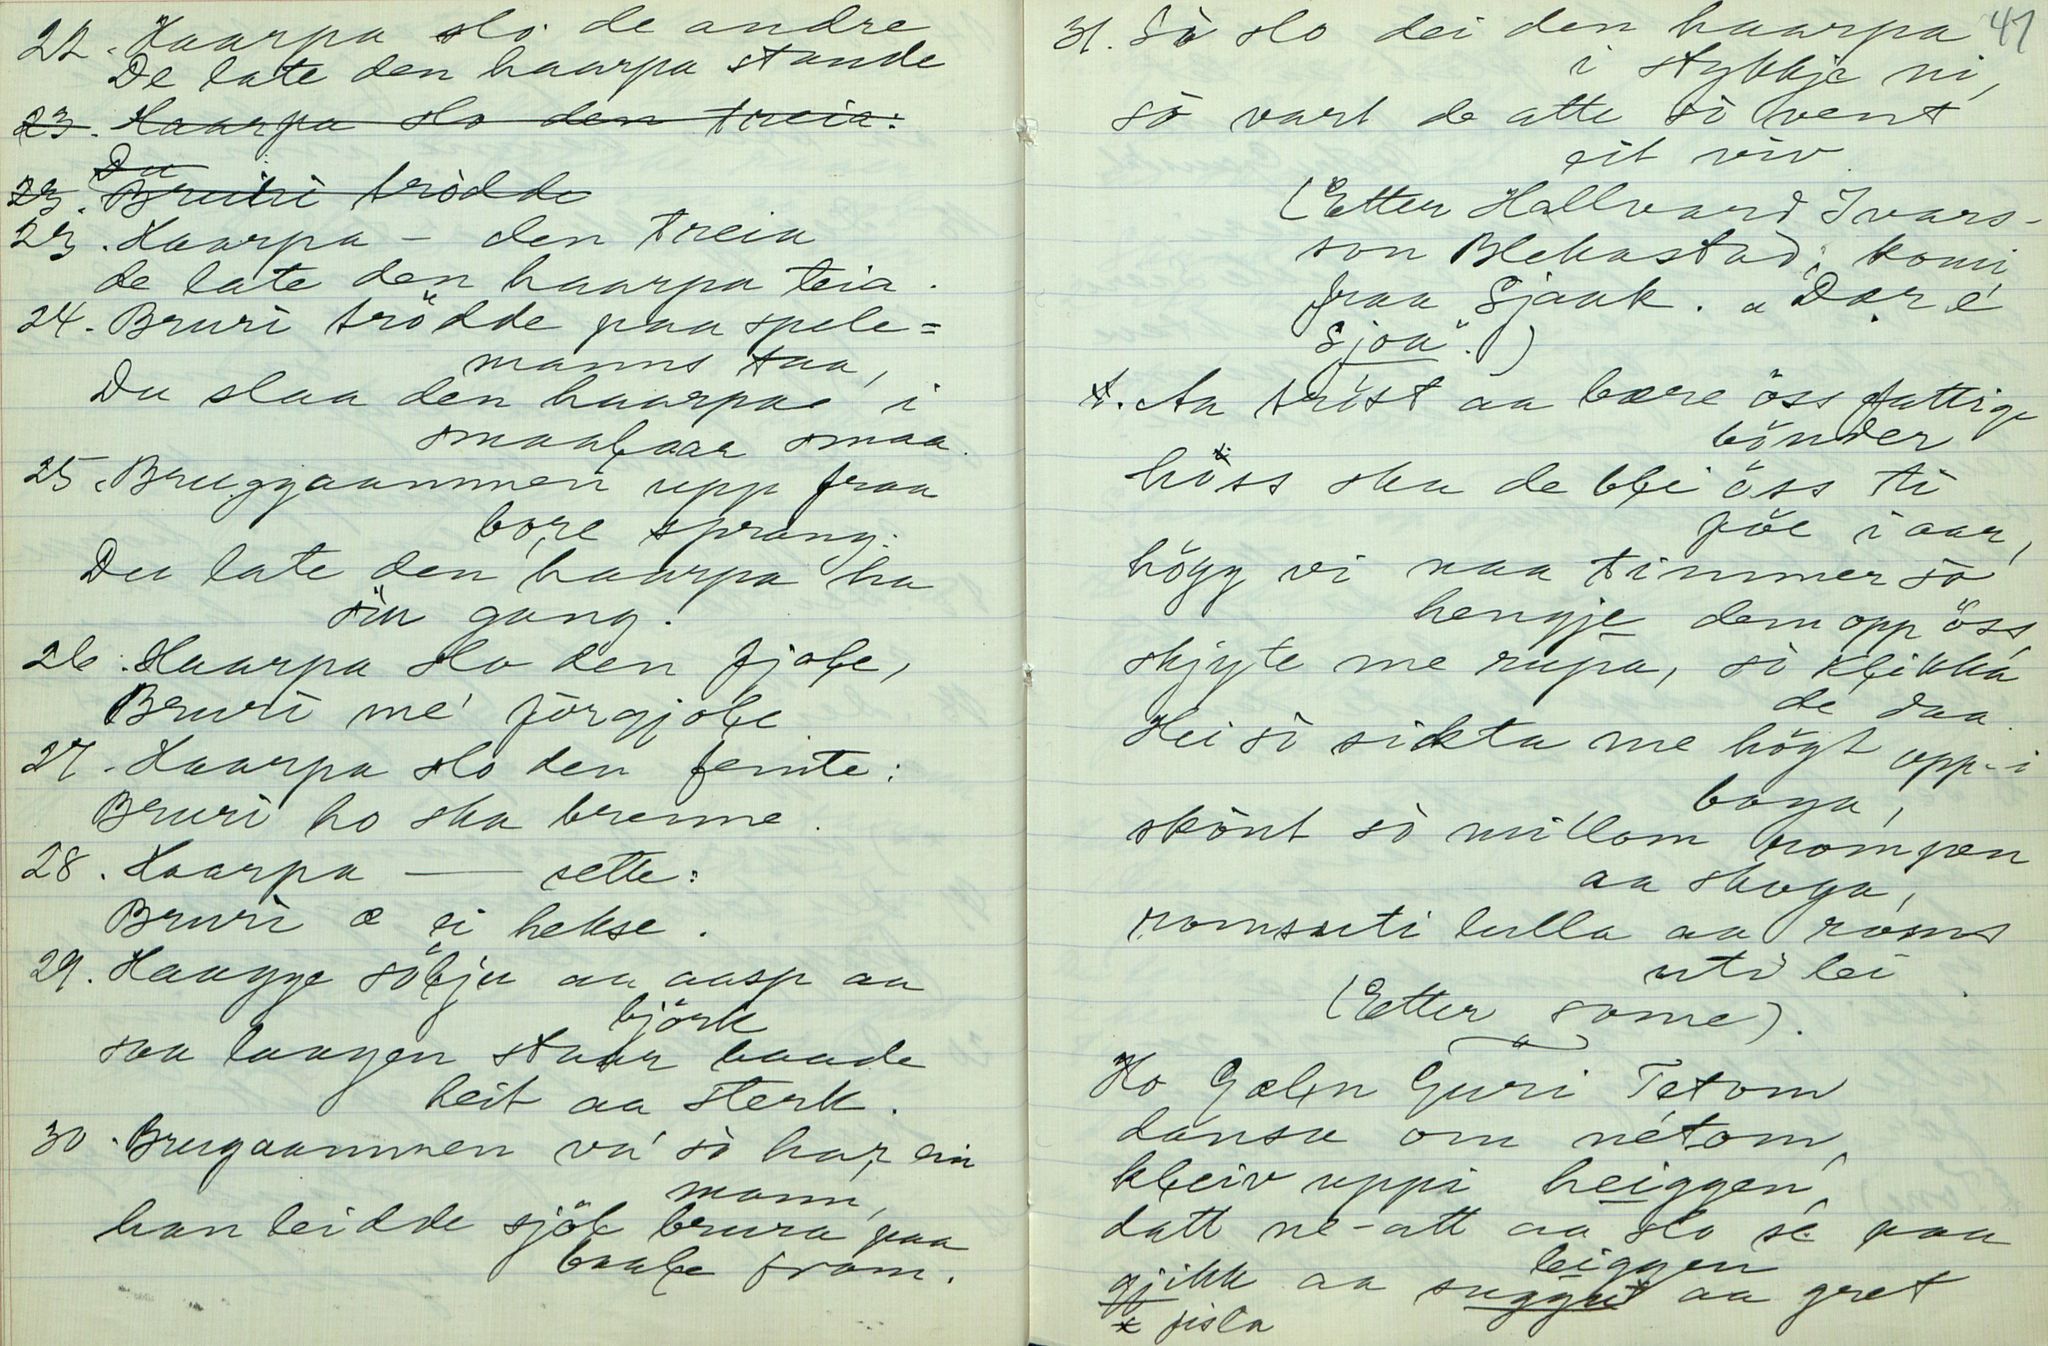 22. Haarpa slo de andre
De late den haarpa stande
23. Haarpa slo den treia:
Du
23. Bruri trödde
23. Haarpa – den treia
de late den haarpa teia.
24. Bruri trödde paa spele=
manns taa,
Du slaa den haarpa i
smaalaar smaa.
25. Bruggaammen upp fraa
bore sprang:
Du late den haarpa ha
sin gang.
26. Haarpa slo den fjole,
Bruri me' forgjole
27. Haarpa slo den femte:
Bruri ho ska brenne.
28. Haarpa — sette:
Bruri æ ei hekse.
29. Haagge sölju aa aasp aa
björk
saa laagen staar baade
heit aa sterk.
30. Brugaammen va' so har ein
mann,
han leidde sjöl brura paa
baale fram.
41
31. So slo dei den haarpa
i stykkje ni,
so vart de atte so vent
eit viv
(Etter Hallvard Ivars-
son Blekastad, komi
fraa Sjaak. "Dær é
Sjoa".)
Aa tröst aa bære öss fattige
bönder
höss ska de bli öss ti
föe i aar,
högg vi naa timmer so
hengje dem opp öss
skjyte me rupa, so klikka
de daa
Hei so sikta me högt opp-i
baga,
skönt so millom rompen
aa skaga,
romsuti lulla aa roms
uti lei.
(Etter same).
Ho Galen Guri Tetom
dansa om nétom,
kleiv uppi heiggen,
datt ne-att aa slo se paa
leiggen
gjikk aa suggu aa gret
x fisla